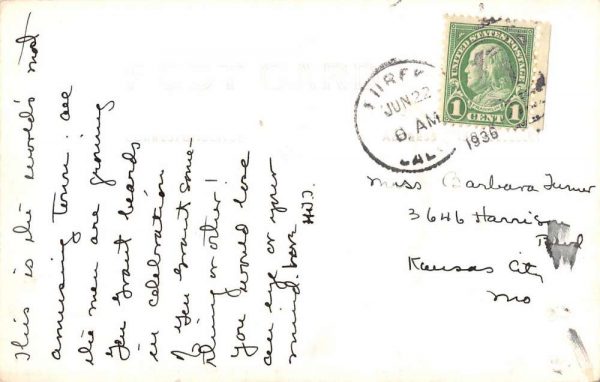 This is the world's most
amusing town: all
the men are growing
Gen Grant beards
in celebration
of Gen Grant some-
thing or other!
You would lose
an eye or your
mind. Love
JUN 22
8 AM
CAL.
1936
UNITED STATES POSTAGE
1 CENT 1
Miss Barbara Turner
3646 Harrison
Blvd
Kansas City
Mo